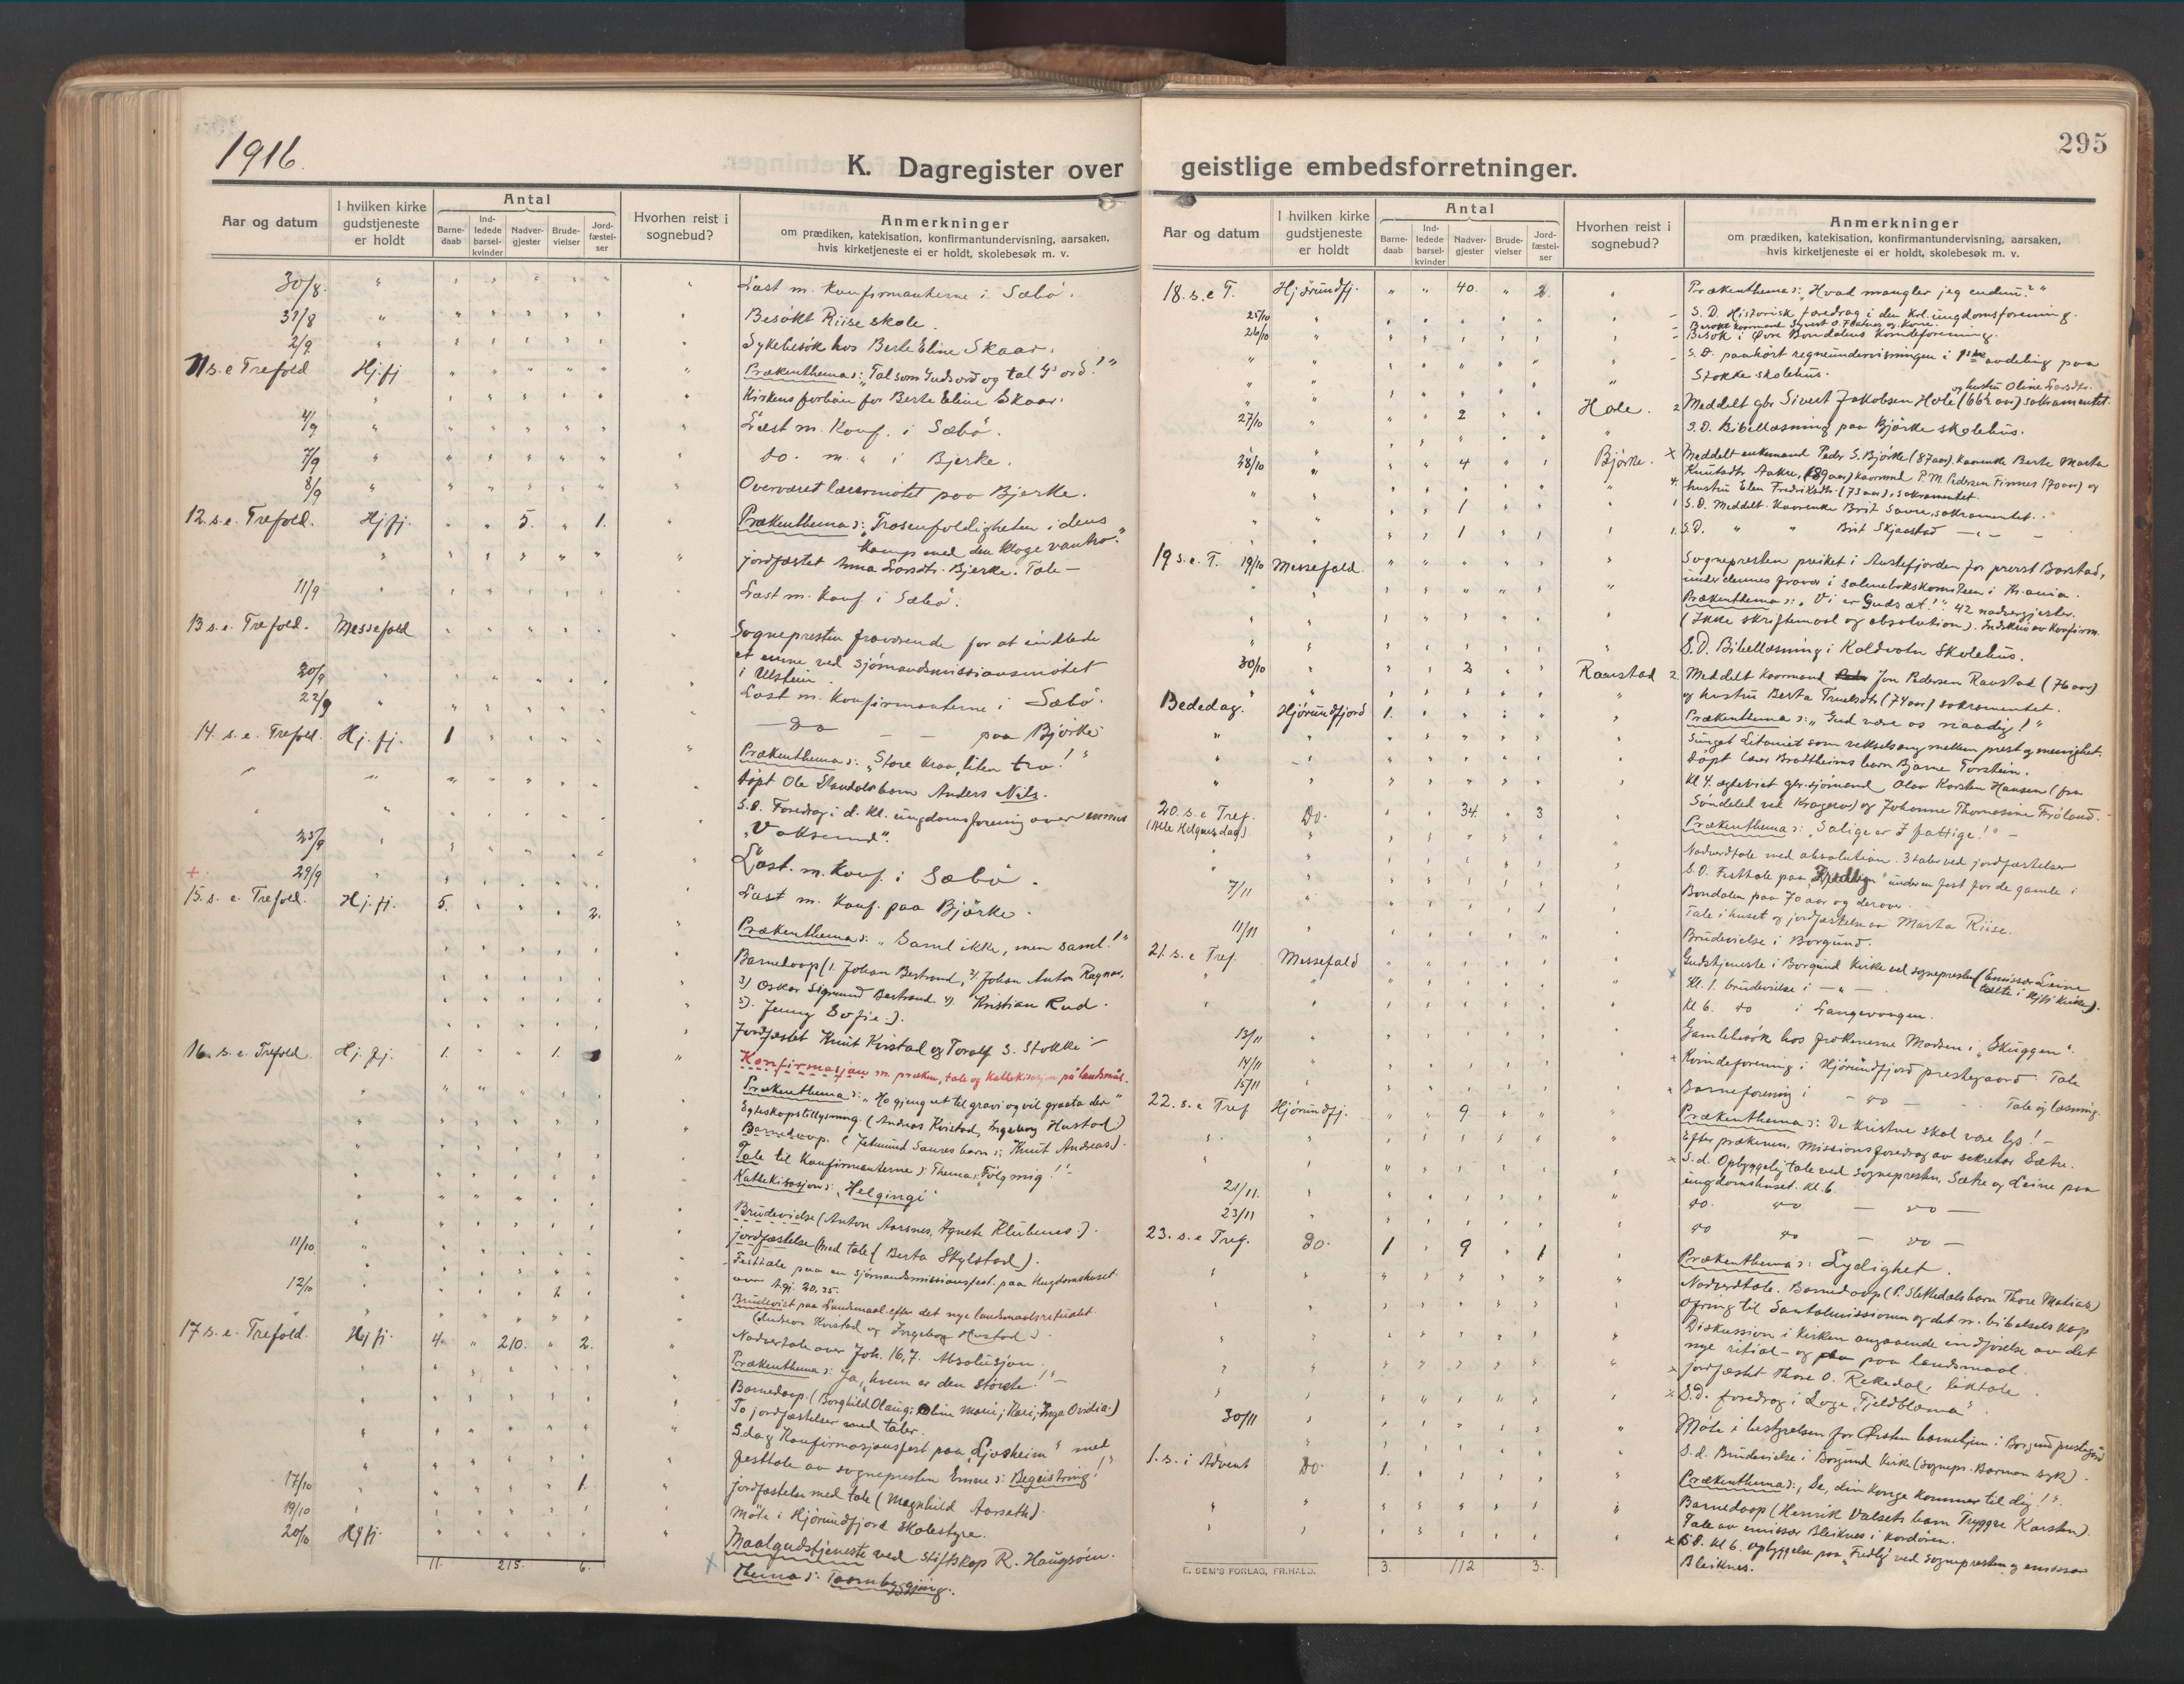 1916.
K. Dagregister over
Aar og datum
I hvilken kirke gudstjeneste er holdt
Antal
Barne-daab
Ind-ledede barsel-kvinder
Nadver-gjester
Brude-vielser
Jord-fæstel-ser
Hvorhen reist i sognebud?
Anmerkninger
om prædiken, katekisation, konfirmantundervisning, aarsaken,
hvis kirketjeneste ei er holdt, skolebesøk m. v.
30/8. Læst m. Konfirmanterne i Sæbö.
31/8 Besökt Riise skole.
2/9 Sykebesök hos Berte Eline Skaar.
11 s. e Trefold Hj.fj Prækenthema: "Tal som Guds ord og tal G's ord!"
Kirkens forbön for Berte Eline Skaar.
4/9 Læst m. Konf. i Sæbö.
7/9 do. m. " i Bjerke.
8/9 Overværet lærermötet paa Bjerke.
12. s. e. Trefold. Hj.fj. 5. 1. Prækenthema: "Trosenfoldigheten i dens
Kamp med den kloge vantro."
jordfæstet Anna Larsdtr. Bjerke. Tale —
11/9 Læst m. Konf. i Sæbö.
13 s. e. Trefold. Messefald Sognepresten fraværende for at indlede
et emne ved sjömandsmissionsmötet
i Ulstein.
20/9 Læst m. Konfirmanterne i Sæbö.
22/9 — Do — — paa Björke
14. s. e. Trefold. Hj. fj. 1 Prækenthema: "Store krav, liten tro!"
Döpt Ole Standals barn Anders Nils.
S.D. Foredrag i d. kl. ungdomsforening over emnet
"Voksund".
25/9 Læst. m. Konf. i Sæbö.
29/9 Læst m. Konf. paa Björke.
15. s. e. Trefold. Hj. fj. 5. 2. Prækenthema: "Saml ikke, men saml!"
Barnedaap (1. Johan Bertrand, 2) Johan Anton Ragnar,
3) Oskar Sigmund Bertrand 4). Kristian Rud.
5). Jenny Sofie.).
Jordfæstet Knut Kvistad og Toralf S. Stokke —
16. s. e. Trefold. Hj. fj. 1. 1. Konfirmasjon m. præken, tale og Kattekisasjon på landsmål.
Prækenthema: "Ho gjeng ut til gravi og vil graata der"
Egteskapstillysning (Andreas Kvistad, Ingeborg Hustad)
Barnedaap. (Jetmund Saures barn: Knut Andreas).
Tale til Konfirmanterne: Thema: "Fölg mig!"
Kattekisasjon: "Helgingi"
Brudevielse (Anton Aarsnes, Agnete Klubenes.).
jordfæstelse (med tale (Berta Skylstad).
11/10 Festtale paa en sjömandsmissionsfest. paa Ungdomshuset.
12/10 Brudeviet paa Landsmaal efter det nye landsmaalsritualet.
(Andreas Kvistad og Ingeborg Hustad).
17 s. e. Trefold. Hj fj. 4. 210. 2. Nadvertale over Joh. 16,7. Absolusjon.
Prækenthema: Ja, "hvem er den störste!" —
Barnedaap. (Borghild Olaug; Oline Marie; Kari; Inga Ovidia.)
To jordfæstelser med taler.
S.dag Konfirmasjonsfest paa "Ljosheim" med
festtale av sognepresten Emne: Begeistring!"
17/10 1. jordfæstelse med tale (Magnhild Aarseth).
19/10 Möte i Hjörundfjord Skolestyre.
20/10 Hj fj. Maalgudstjeneste ved stiftskap R. Haugsöen.
Thema: Taarnbyggjing.
11. 215. 6.
geistlige embedsforretninger.
295
Aar og datum
I hvilken kirke gudstjeneste er holdt
Antal
Barne-daab
Ind-ledede barsel-kvinder
Nadver-gjester
Brude-vielser
Jord-fæstel-ser
Hvorhen reist i sognebud?
Anmerkninger
om prædiken, katekisation, konfirmantundervisning, aarsaken,
hvis kirketjeneste ei er holdt, skolebesøk m. v.
18. s. e T. Hjörundfj. 40. 2. Prækenthema: "Hvad mangler jeg endnu?"
S. D. Historisk foredrag i den Krl. ungdomsforening.
25/10
26/10 Besök i Övre Bondalens Kvindeforening.
S. D. paahört regneundervisningen i 1ste avdeling paa
Stokke skolehus.
og hustru Oline Larsdtr.
27/10 2 Hole. 2 Meddelt gbr Sivert Jakobsen Hole (66½ aar) sakramentet.
S.D. Bibellæsning paa Björke skolehus.
28/10 4 Bjørke. Meddelt enkemand Peder S. Bjørke (87 aar). Kaarenke Berte Marta
Knutsdtr Aakre, (89 aar) kaarmand P. M. Pedersen Finnes (70 aar) og
4. hustru Elen Fredriksdtr. (73 aar), sakramentet.
1 1 S.D. Meddelt. Kaarenke Brit Saure, sakramentet.
1 1. S.D. " " Brit Skjaastad — " —
19 s. e. T. 19/10 Messefald. Sognepresten preiket i Austefjorden for prost Barstad,
under dennes fravær i salmebokskomiteen i Kr.ania.
Prækenthema: "Vi er Guds æt!" 42 nadvergjester.
(Ikke skriftemaal og absolution). Indskriv av Konfirm.
S.D. Bibellæsning i Kaldvatn Skolehus.
30/10 2 Raustad 2 Meddelt Kaarmand Jon Pedersen Raustad (76 aar)
og hustru Berta Truelsdtr (74 aar) sakramentet.
Bededag. Hjörundfjord 1. Prækenthema: "Gud være os naadig!"
Sunget Litaniet som vekselsang mellem prest og menighet.
Döpt lærer Brattheims barn Bjarne Torstein.
Kl 4. egteviet gbr. sjömand Olav Karsten Hansen (fra
Söndeled ved Kragerø) og Johanne Thomasine Fröland.
20. s. e Tref. Do. 34. 3 Prækenthema: "Salige er I fattige!" —
(Alle Helgensdag) Nadverdtale med absolution. 3 taler ved jordfæstelser
S.D. Festtale paa "Fredly" under en fest for de gamle i
Bondalen paa 70 aar og derover.
7/11 Tale i huset og jordfæstelse av Marta Riise.
11/11 Brudevielse i Borgund.
21. s. e Tref. Messefald Gudstjeneste i Borgund Kirke ved sognepresten (Emissær Leine
talte i Hjfj Kirke).
Kl. 1. brudevielse i — " —
Kl 6. do i Langevaagen.
13/11 Gamlebesök hos frökenerne Madsen i "Skuggen".
14/11 Kvindeforening i Hjörundfjord prestegaard. Tale
15/11 Barneforening i — do — Tale og læsning.
22. s. e Tref Hjörundfj. 9 Prækenthema: De kristne skal være lys! —
Efter prækenen, Missionsforedrag av sekretær Sætre.
S. d. Opbyggelig tale ved sognepresten, Sætre og Leine paa
ungdomshuset. kl. 6.
21/11. do. do — do —
23/11 do do — do —
23. s. e Tref. Do. 1 9 1 Prækenthema: Lydighet.
Nadverdtale. Barnedaap (P. Slettedals barn Thore Matias)
Ofring til Santalmissionen og det n. bibelselskap
Diskussion i kirken angaaende indförelse av det
nye ritual - og paa landsmaal.
jordfæstet Thore O. Rekkedal, liktale.
S.d. foredrag i Loge "Fjeldblomn".
30/11 Möte i bestyrelsen for Örsten barnehjem i Borgund prestegård
S. d. Brudevielse i Borgund Kirke (sognepr. Barman syk).
1. s. i Advent Do. 1. Prækenthema: "Se, din konge kommer til dig!"
Barnedaap (Henrik Valsets barn Tryggve Karsten).
Tale av emissær Bleiknes i kordören.
S.D. Kl 6. opbyggelse paa "Fredly" ved sognepresten og emissær
Bleiknes.
3. 112 3.
E. SEM'S FORLAG, FR.HALD.